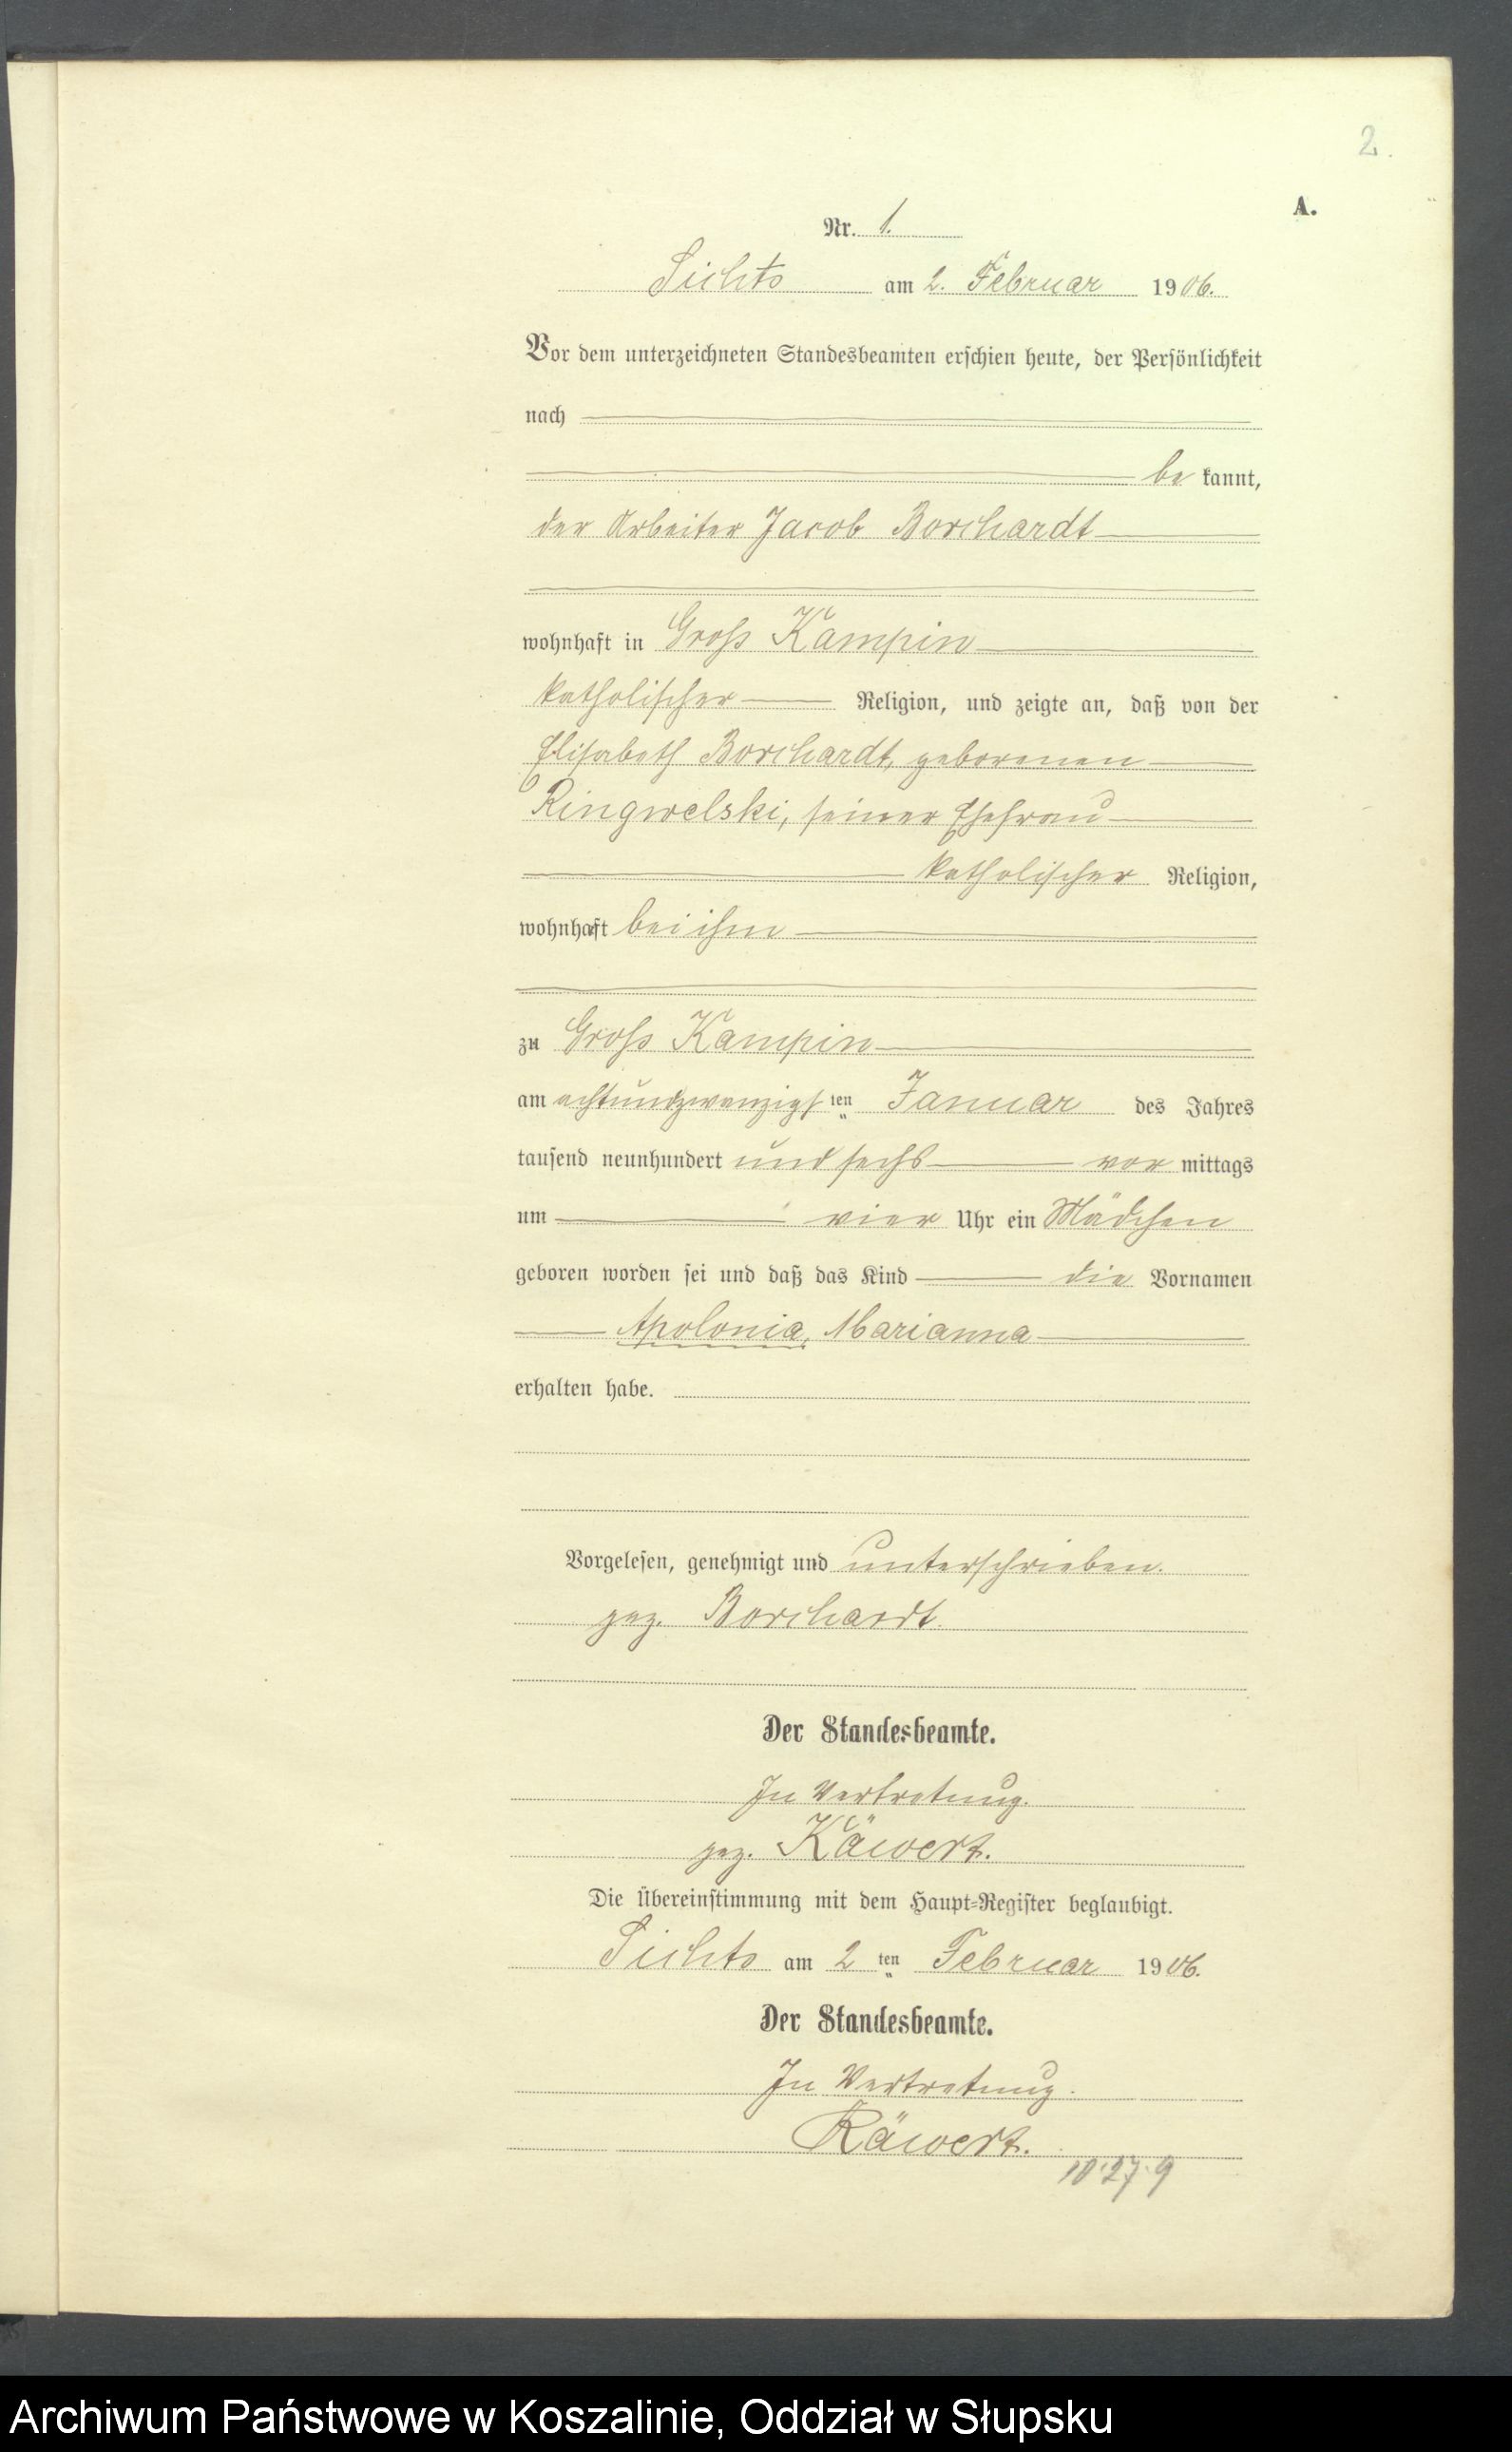 2.
A.
Nr. 1.
Sichts am 2. Februar 1906.
Vor dem unterzeichneten Standesbeamten erschien heute, der Persönlichkeit
nach
be kannt,
der Arbeiter Jacob Borchardt
wohnhaft in Groß Kampin
katholischer Religion, und zeigte an, daß von der
Elisabeth Borchardt, geborenen
Ringwelski, seiner Ehefrau
katholischer Religion,
wohnhaft bei ihm
zu Groß Kampin
am achtundzwanzigsten Januar des Jahres
tausend neunhundert und sechs vor mittags
um vier Uhr ein Mädchen
geboren worden sei und daß das Kind die Vornamen
Apolonia, Marianna
erhalten habe.
Vorgelesen, genehmigt und unterschrieben.
gez. Borchardt.
Der Standesbeamte.
In Vertretung.
gez. Käwert.
Die Übereinstimmung mit dem Haupt-Register beglaubigt.
Sichts am 2ten Februar 1906.
Der Standesbeamte.
In Vertretung.
Käwert.
10·27·9
Archiwum Państwowe w Koszalinie, Oddział w Słupsku